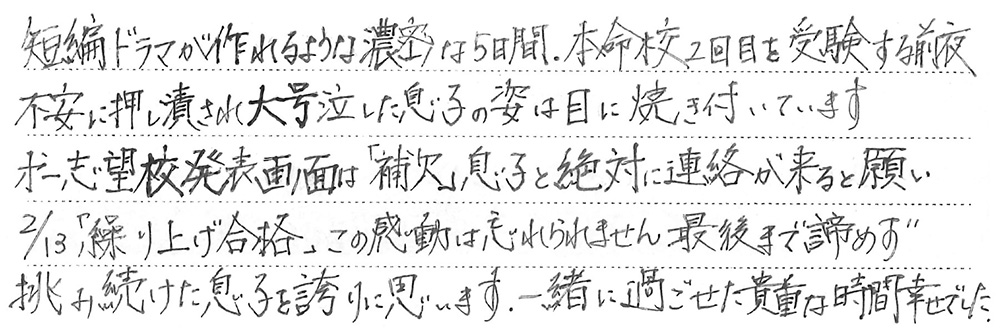 短編ドラマが作れるような濃密な5日間.本命校2回目を受験する前夜
不安に押し潰され大号泣した息子の姿は目に焼き付いています
才一志望校発表画面は「補欠」息子と絶対に連絡が来ると願い
2/13「繰り上げ合格」この感動は忘れられません最後まで諦めず
挑み続けた息子を誇りに思います.一緒に過ごせた貴重な時間幸せでした.